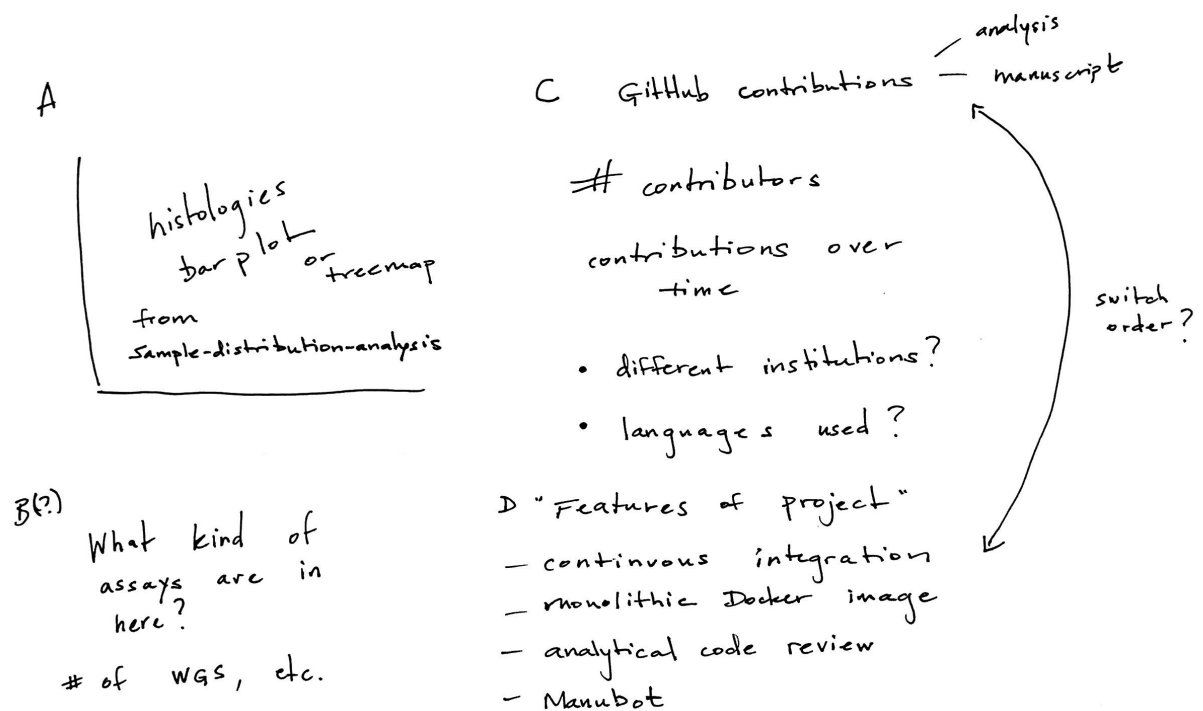 A
histologies
bar plot
or
treemap
from
sample-distribution-analysis
B(?)
What kind of
assays are in
here?
# of WGS, etc.
C GitHub contributions — analysis
— manuscript
# contributors
contributions over
time
• different institutions?
• languages used?
switch
order?
D "Features of project"
– continuous integration
– monolithic Docker image
– analytical code review
– Manubot